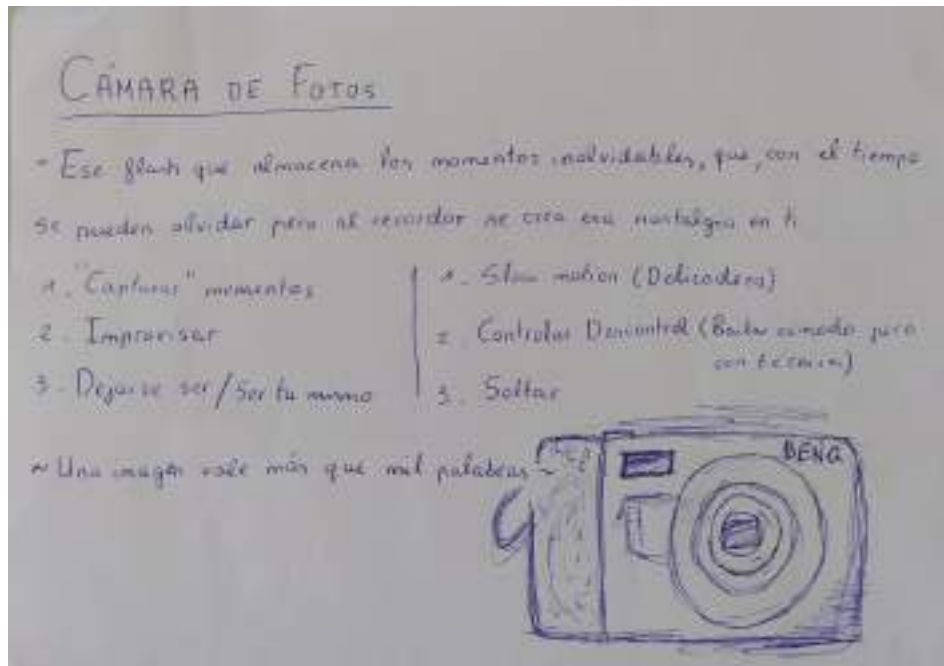 CÁMARA DE FOTOS
- Ese flash que almacena los momentos inolvidables, que, con el tiempo
se pueden olvidar pero al recordar se crea esa nostalgia en ti
1. "Capturar" momentos
2. Improvisar
3. Dejarse ser / Ser tu mismo
1. Slow motion (Delicadeza)
2. Controlar Descontrol (Bailar comodo pero
con tecnica)
3. Soltar
~ Una imagen vale más que mil palabras ~
BENQ